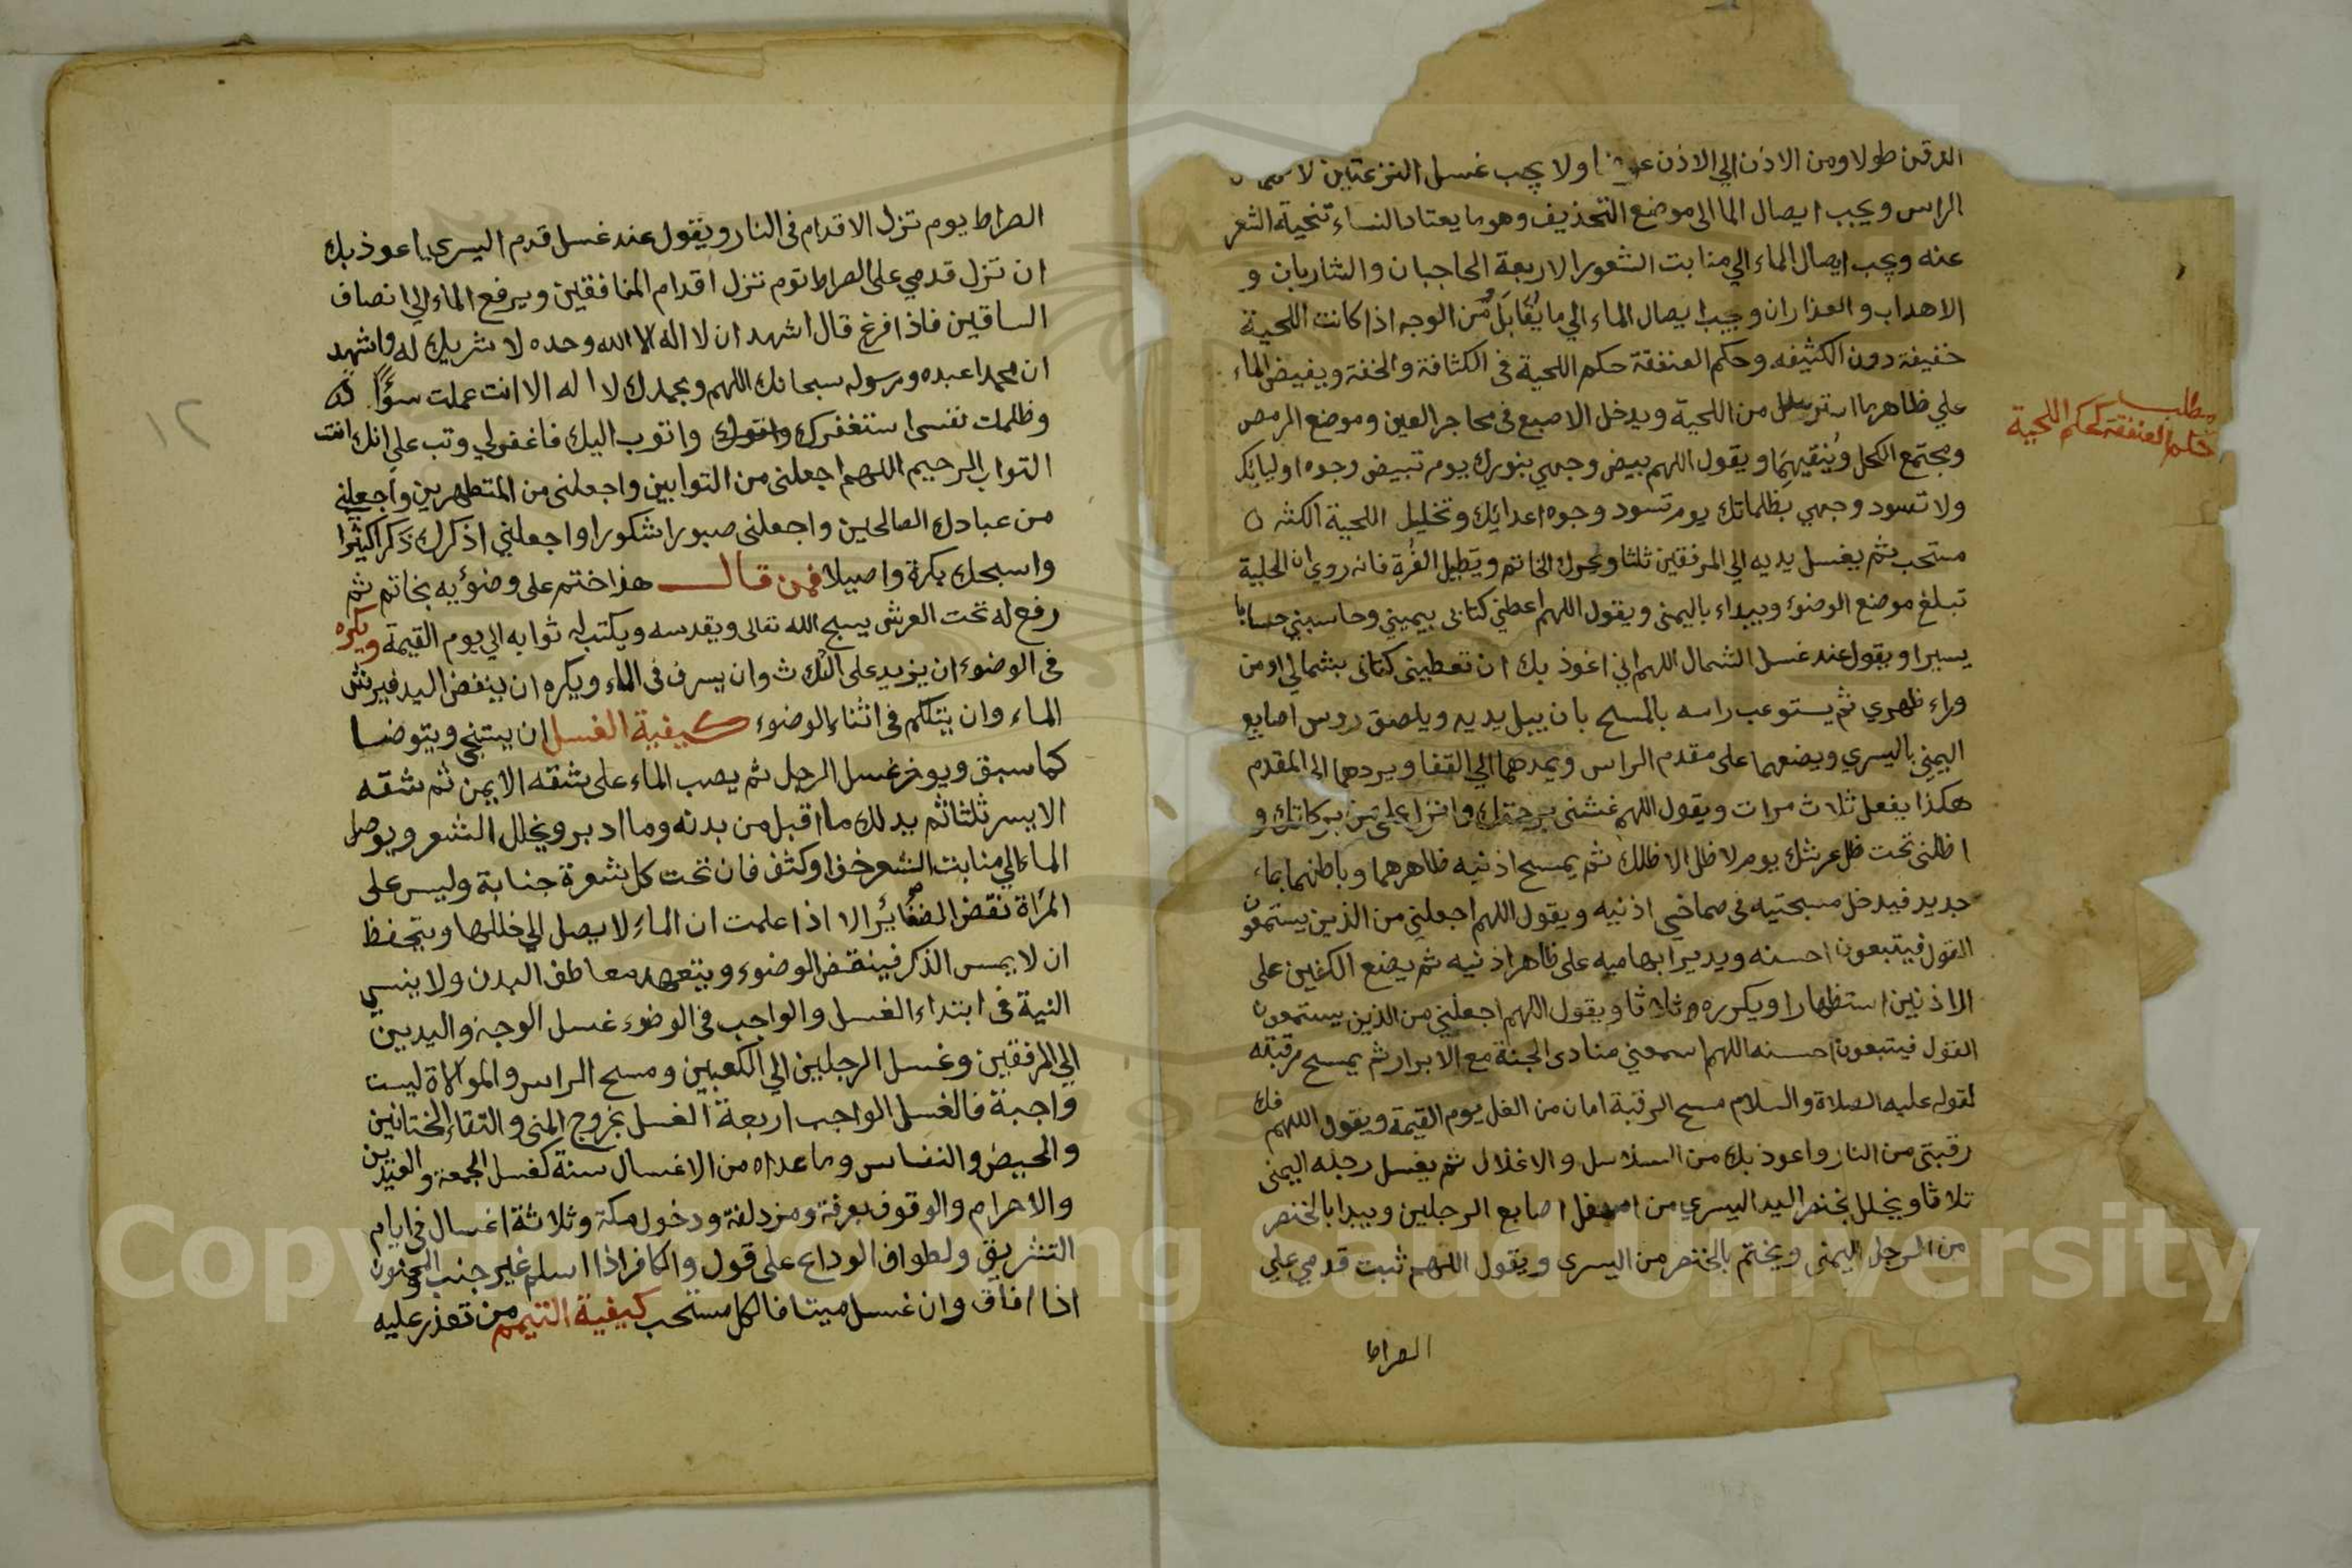 الذقن طولا ومن الاذن الي الاذن ولا يجب غسل النزعتين
الراس ويجب ايصال الما الى موضع التحذيف وهو ما يعتاد النساء تنحية الشعر
عنه ويجب ايصال الماء الي منابت الشعور الاربعة الحاجبان والشاربان و
الاهداب والعذاران ويجب ايصال الماء الي ما يُقَابَلُ مِن الوجه اذا كانت اللحية
خفيفة دون الكثيفه وحكم العنفقة حكم اللحية فى الكثافة والخفة ويفيض الماء
علي ظاهر ما استرسل من اللحية ويدخل الاصبع فى محاجر العين وموضع الرمص
ومجتمع الكحل ويُنقيهِمَا ويقول اللهم بيض وجهي بنورك يوم تبيض وجوه اوليايك
ولا تسود وجهي بظلماتك يوم تسود وجوه اعدايك وتخليل اللحية الكثه
مستحب ثم يغسل يديه الي المرفقين ثلثا ويحرك الخاتم ويَطيل الغُرة فانه روي ان الحلية
تبلغ موضع الوضوء ويبداء باليمنى ويقول اللهم اعطني كتابى بيميني وحاسبني حسابا
يسيرا ويقول عند غسل الشمال اللهم اني اغوذ بك ان تعطينى كتابى بشمالي او من
وراء ظهري ثم يستوعب راسه بالمسح بان يبل يديه ويلصق روس اصابع
اليمني باليسري ويضعهما على مقدم الراس ويمدهما الي القفا ويردهما الى المقدم
هكذا يفعل ثلاث مرات ويقول اللهم غشنى برحمتك وانزل علي من بركاتك و
اظلنى تحت ظل عرشك يوم لا ظل الا ظلك ثم يمسح اذنيه ظاهرهما وباطنهما بماء
جديد فيدخل مسبحتيه فى صماخي اذنيه ويقول اللهم اجعلني من الذين يستمعون
القول فيتبعون احسنه ويدير ابهاميه على ظاهر اذنيه ثم يضع الكفين على
الاذنين استظهارا ويكرره ثلاثا ويقول اللهم اجعلني من الذين يستمعون
القول فيتبعون احسنه اللهم اسمعني منادى الجنة مع الابرار ثم يمسح رقبته
لقوله عليه الصلاة والسلام مسح الرقبة امان من الغل يوم القيمة ويقول اللهم فك
رقبتى من النار واعوذ بك من السلاسل والاغلال ثم يغسل رجله اليمنى
ثلاثا ويخلل بخنصر اليد اليسري من اسفل اصابع الرجلين ويبدا بالخنصر
من الرجل اليمنى ويختم بالخنصر من اليسرى ويقول اللهم ثبت قدمي على
الصراط
مطلب
حكم العنفقة كحكم اللحية
الصراط يوم تزل الاقدام فى النار ويقول عند غسل قدم اليسري اعوذ بك
ان تزل قدمي على الصراط يوم تزل اقدام المنافقين ويرفع الماء الي انصاف
الساقين فاذا فرغ قال اشهد ان لا اله الا الله وحده لا شريك له واشهد
ان محمدا عبده ورسوله سبحانك اللهم وبحمدك لا اله الا انت عملت سوًاً
وظلمت نفسى استغفرك واتوب اليك فاغفرلي وتب علي انك انت
التواب الرحيم اللهم اجعلنى من التوابين واجعلنى من المتطهرين واجعلنى
من عبادك الصالحين واجعلنى صبورا شكورا واجعلني اذكرك ذكرا كثيرا
واسبحك بكرة واصيلا فمن قال هذا ختم على وضوئه بخاتم ثم
رفع له تحت العرش يسبح الله تعالى ويقدسه ويكتب له ثوابه الي يوم القيمة ويكره
فى الوضوء ان يزيد على الثلاث وان يسرف فى الماء ويكره ان ينفض اليد فيرش
الماء وان يتكلم فى اثناء الوضوء كيفية الغسل ان يستنجي ويتوضا
كما سبق ويوخر غسل الرجل ثم يصب الماء على شقه الايمن ثم شقه
الايسر ثلثا ثم يدلك ما اقبل من بدنه وما ادبر ويخلل الشعر ويوصل
الماء الي منابت الشعر خف او كثف فان تحت كل شعرة جنابة وليس على
المرأة نقض الضفاير الا اذا علمت ان الماء لا يصل الي خللها ويتحفظ
ان لا يمس الذكر فينقض الوضوء ويتعهد معاطف البدن ولا ينسي
النية فى ابتداء الغسل والواجب فى الوضوء غسل الوجه واليدين
الي المرفقين وغسل الرجلين الي الكعبين ومسح الراس والموالاة ليست
واجبة فالغسل الواجب اربعة الغسل بخروج المنى والتقاء الختانين
والحيض والنفاس وما عداه من الاغسال سنة كغسل الجمعة والعيدين
والاحرام والوقوف بعرفة ومزدلفة ودخول مكة وثلاثة اغسال فى ايام
التشريق ولطواف الوداع على قول والكافر اذا اسلم غير جنب والمجنون
اذا افاق وان غسل ميتا فالكل مستحب كيفية التيمم من تعذر عليه
١٢
Copyright © King Saud University